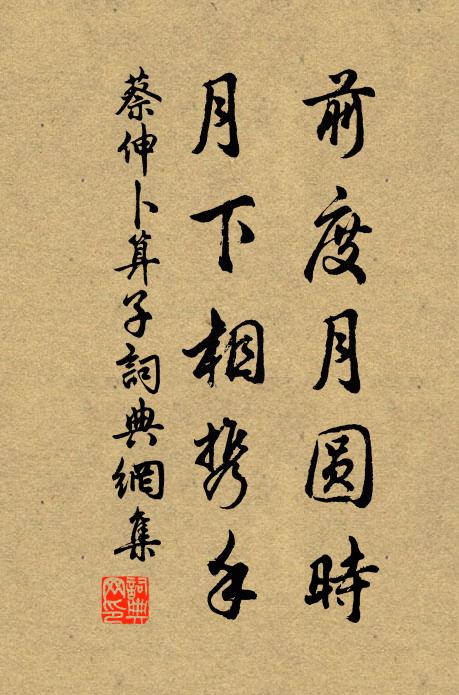 前度月圆時
月下相携手
蔡伸卜算子詞典網集
詞典网印